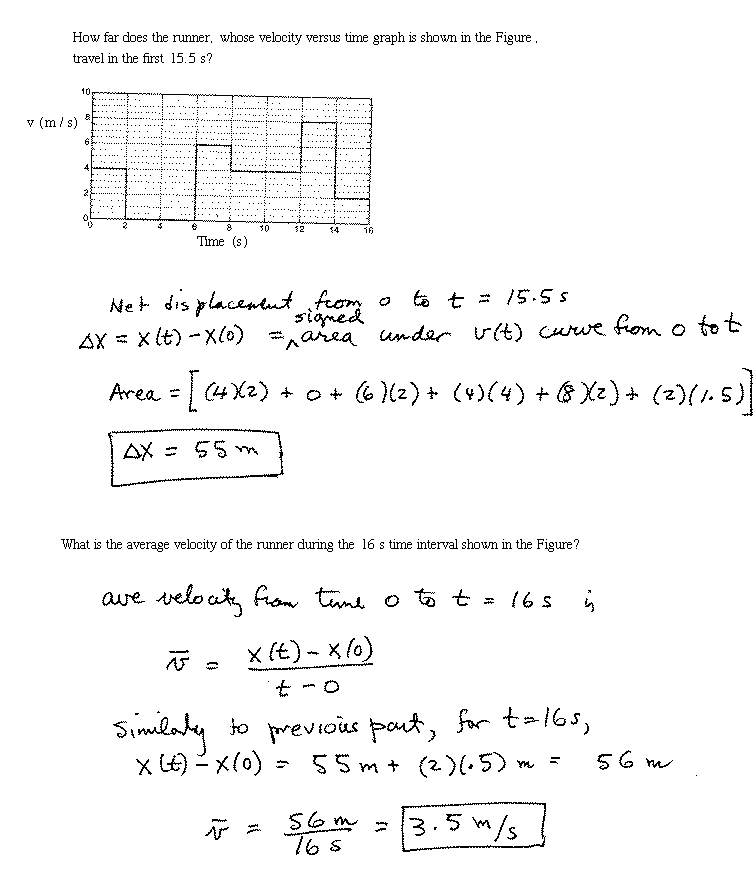 How far does the runner, whose velocity versus time graph is shown in the Figure,
travel in the first 15.5 s?
10
v (m / s)
8
6
4
2
0
0 2 4 6 8 10 12 14 16
Time (s)
Net displacement from 0 to t = 15.5 s
signed
ΔX = X(t) - X(0) = ^ area under v(t) curve from 0 to t
Area = [(4)(2) + 0 + (6)(2) + (4)(4) + (8)(2) + (2)(1.5)]
ΔX = 55 m
What is the average velocity of the runner during the 16 s time interval shown in the Figure?
ave velocity from time 0 to t = 16 s is
v̄ = X(t) - X(0)
t - 0
Similarly to previous part, for t = 16 s,
X(t) - X(0) = 55 m + (2)(.5) m = 56 m
v̄ = 56 m = 3.5 m/s
16 s